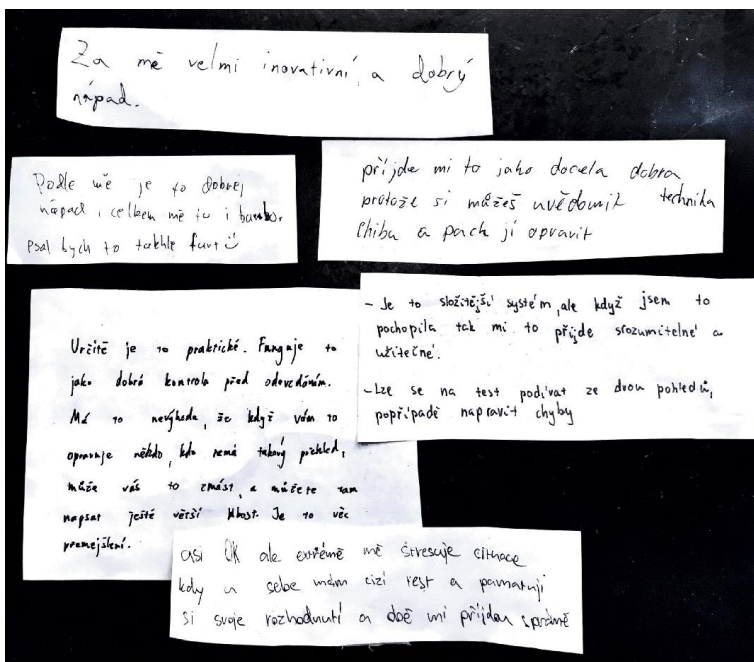 Za mě velmi inovativní, a dobrý
nápad.
Podle mě je to dobrej
nápad, celkem mě to i
psal bych to takhle furt
příjde mi to jako docela dobra
protože si můžeš uvědomit technika
chibu a pach jí opravit
Určitě je to praktické. Funguje to
jako dobrá kontrola před odevzdáním.
Má to nevýhodu, že když vám to
opravuje někdo, kdo nemá takový přehled,
může vás to zmást, a můžete tam
napsat ještě větší . Je to věc
přemejšlení.
- Je to složitější systém, ale když jsem to
pochopila tak mi to přijde srozumitelné a
užitečné.
- Lze se na test podívat ze dvou pohledů,
popřípadě napravit chyby
asi OK ale extrémě mě stresuje cituace
kdy u sebe mám cizí test a pamatuji
si svoje rozhodnutí a obě mi přijdou správně